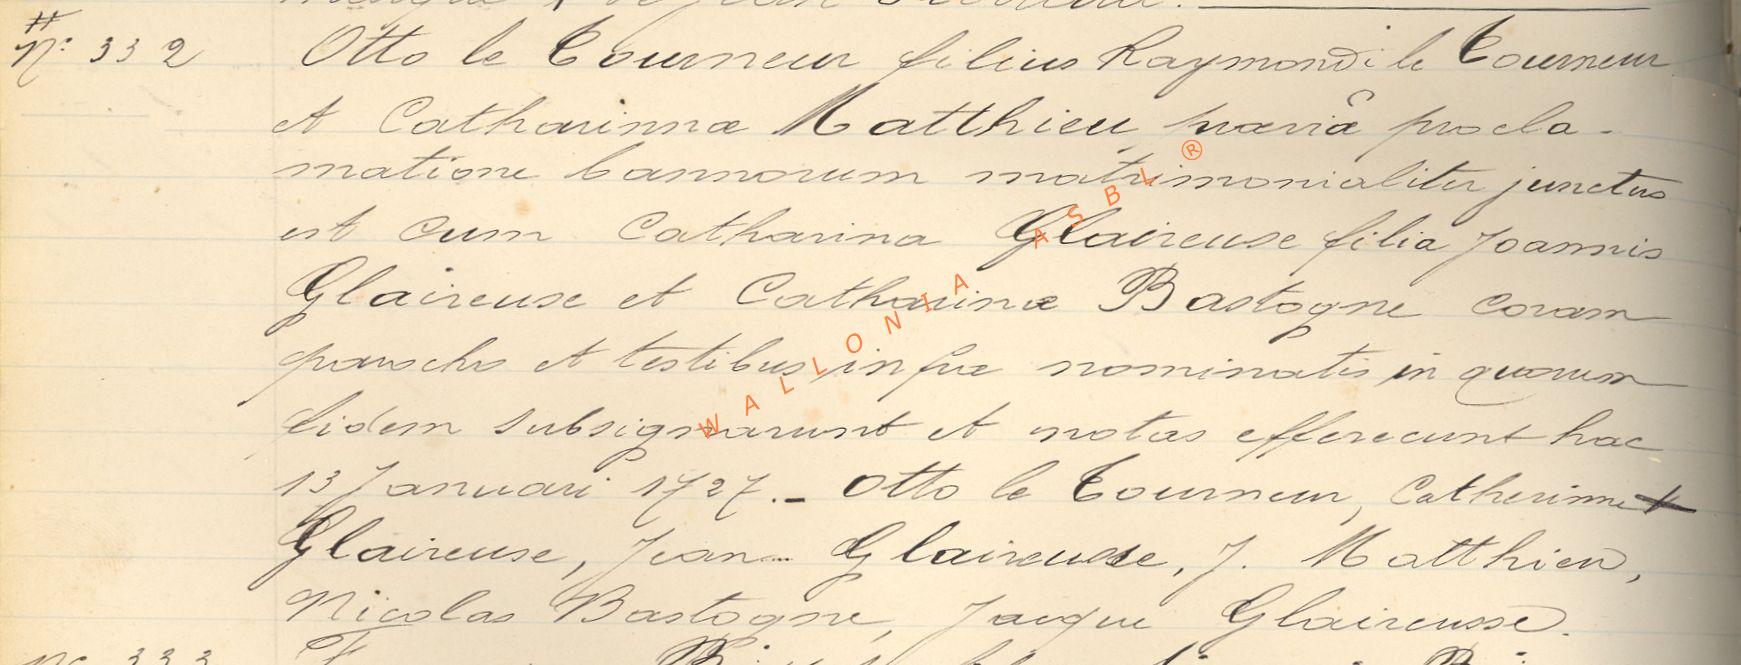 N° 332 Otto le Tourneur filius Raymondi le Tourneur
et Catharinnæ Matthieu, prævia procla-
matione bannorum matrimonialiter junctus
est cum Catharina Glaireuse filia Joannis
Glaireuse et Catharinæ Bastogne coram
parocho et testibus infra nominatis in quorum
fidem subsignarunt et notas effecerunt hac
13 Januari 1727. - Otto le Tourneur, Catherinne
Glaireuse, Jean Glaireusse, J. Matthieu,
Nicolas Bastogne, Jacque Glaireusse.
N° 333
WALLONIA ASBL ®